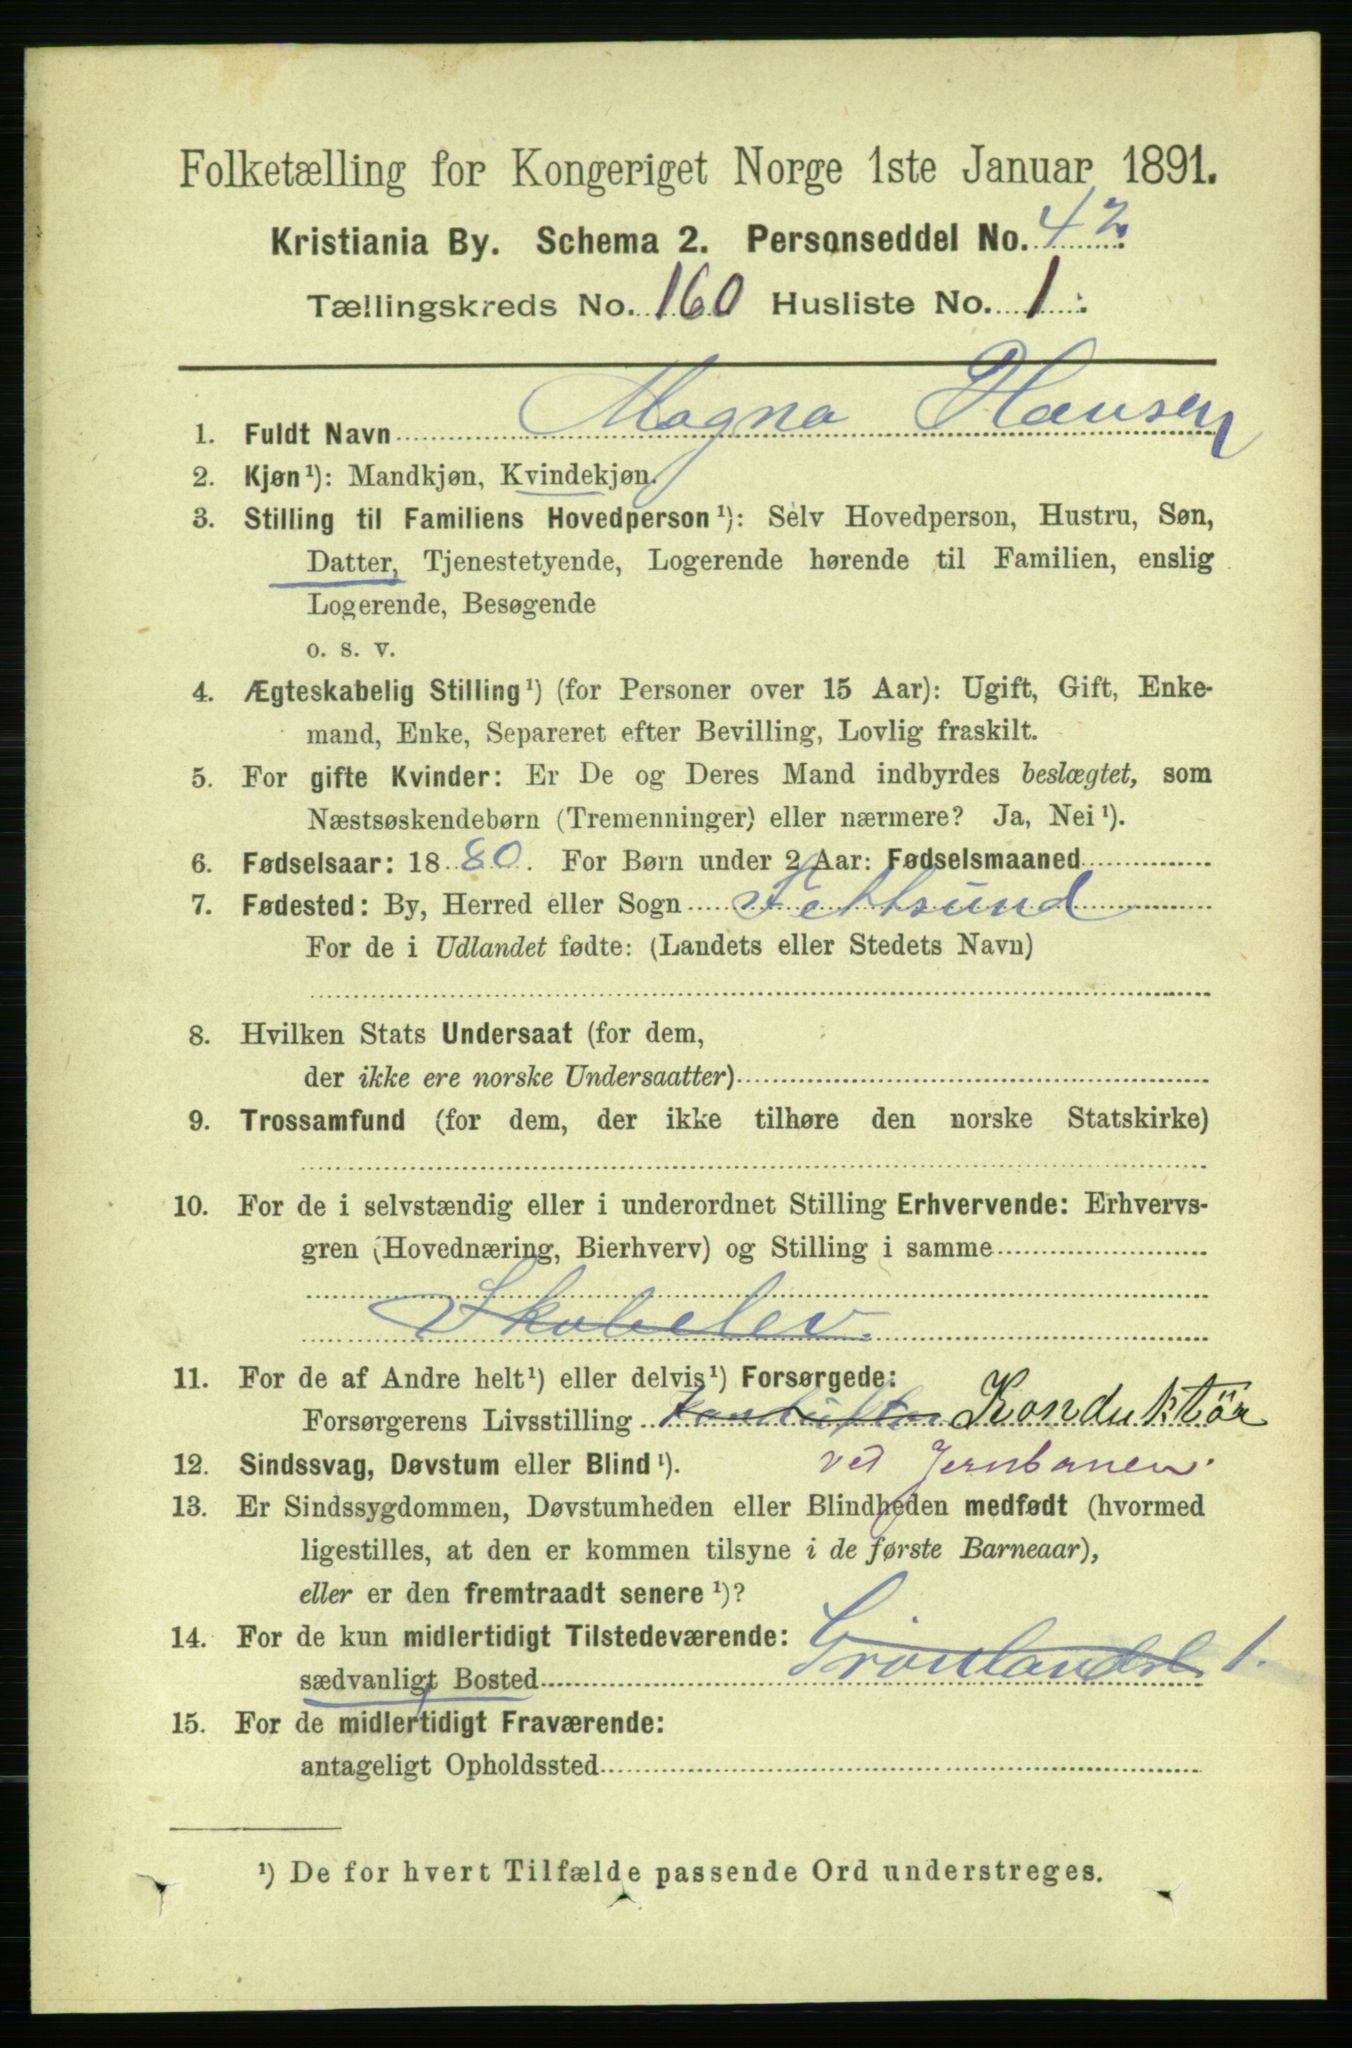 Folketælling for Kongeriget Norge 1ste Januar 1891.
Kristiania By. Schema 2. Personseddel No. 42.
Tællingskreds No. 160 Husliste No. 1.
1. Fuldt Navn Magna Hansen
2. Kjøn¹): Mandkjøn, Kvindekjøn.
3. Stilling til Familiens Hovedperson¹): Selv Hovedperson, Hustru, Søn,
Datter, Tjenestetyende, Logerende hørende til Familien, enslig
Logerende, Besøgende
o. s. v.
4. Ægteskabelig Stilling¹) (for Personer over 15 Aar): Ugift, Gift, Enke-
mand, Enke, Separeret efter Bevilling, Lovlig fraskilt.
5. For gifte Kvinder: Er De og Deres Mand indbyrdes beslægtet, som
Næstsøskendebørn (Tremenninger) eller nærmere? Ja, Nei¹).
6. Fødselsaar: 1880. For Børn under 2 Aar: Fødselsmaaned
7. Fødested: By, Herred eller Sogn Fettsund
For de i Udlandet fødte: (Landets eller Stedets Navn)
8. Hvilken Stats Undersaat (for dem,
der ikke ere norske Undersaatter)
9. Trossamfund (for dem, der ikke tilhøre den norske Statskirke)
10. For de i selvstændig eller i underordnet Stilling Erhvervende: Erhvervs-
gren (Hovednæring, Bierhverv) og Stilling i samme
Skobelev.
11. For de af Andre helt¹) eller delvis¹) Forsørgede:
Forsørgerens Livsstilling Konduktör
12. Sindssvag, Døvstum eller Blind¹). ved Jernbanen.
13. Er Sindssygdommen, Døvstumheden eller Blindheden medfødt (hvormed
ligestilles, at den er kommen tilsyne i de første Barneaar),
eller er den fremtraadt senere¹)?
14. For de kun midlertidigt Tilstedeværende:
sædvanligt Bosted Grönlandsl 1.
15. For de midlertidigt Fraværende:
antageligt Opholdssted
¹) De for hvert Tilfælde passende Ord understreges.